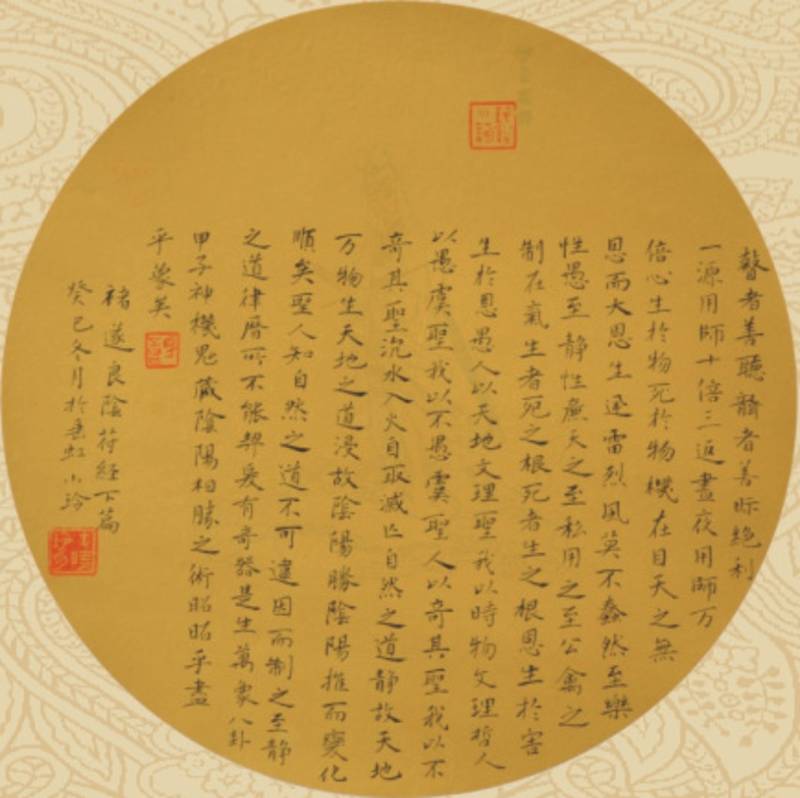 瞽者善聽聾者善眎絕利
一源用師十倍三返晝夜用師万
倍心生於物死於物機在目天之無
恩而大恩生迅雷烈風莫不蠢然至樂
性愚至靜性廉天之至私用之至公禽之
制在氣生者死之根死者生之根恩生於害
生於恩愚人以天地文理聖我以時物文理哲人
以愚虞聖我以不愚虞聖人以奇其聖我以不
奇其聖沉水入火自取滅亡自然之道靜故天地
万物生天地之道浸故陰陽勝陰陽推而變化
順矣聖人知自然之道不可違因而制之至靜
之道律曆所不能契爰有奇器是生萬象八卦
甲子神機鬼藏陰陽相勝之術昭昭乎盡
乎象矣
褚遂良陰符經下篇
癸巳冬月於垂虹小玲